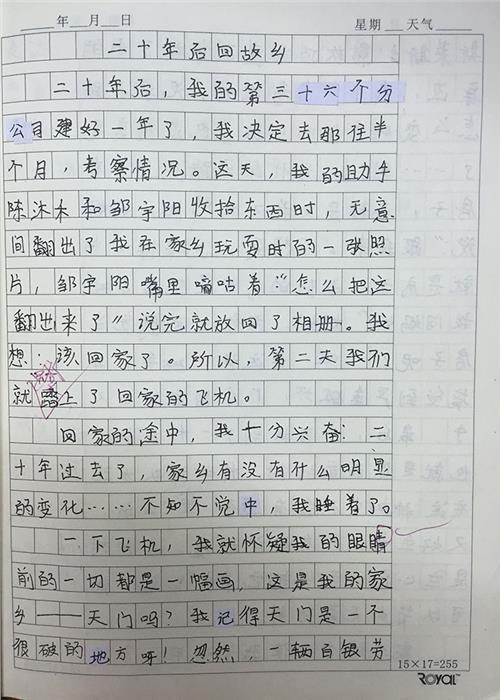 年 月 日 星期 天气
二十年后回故乡
二十年后，我的第三十六个分
公司建好一年了，我决定去那住半
个月，考察情况。这天，我的助手
陈沐木和邹宇阳收拾东西时，无意
间翻出了我在家乡玩耍时的一张照
片，邹宇阳嘴里嘀咕着“怎么把这
翻出来了”说完就放回了相册。我
想：该回家了。所以，第二天我们
就踏上了回家的飞机。
回家的途中，我十分兴奋：二
十年过去了，家乡有没有什么明显
的变化……不知不觉中，我睡着了。
一下飞机，我就怀疑我的眼睛，
前的一切都是一幅画，这是我的家
乡——天门吗？我记得天门是一个
很破的地方呀！忽然，一辆白银劳
15×17=255
ROYAL